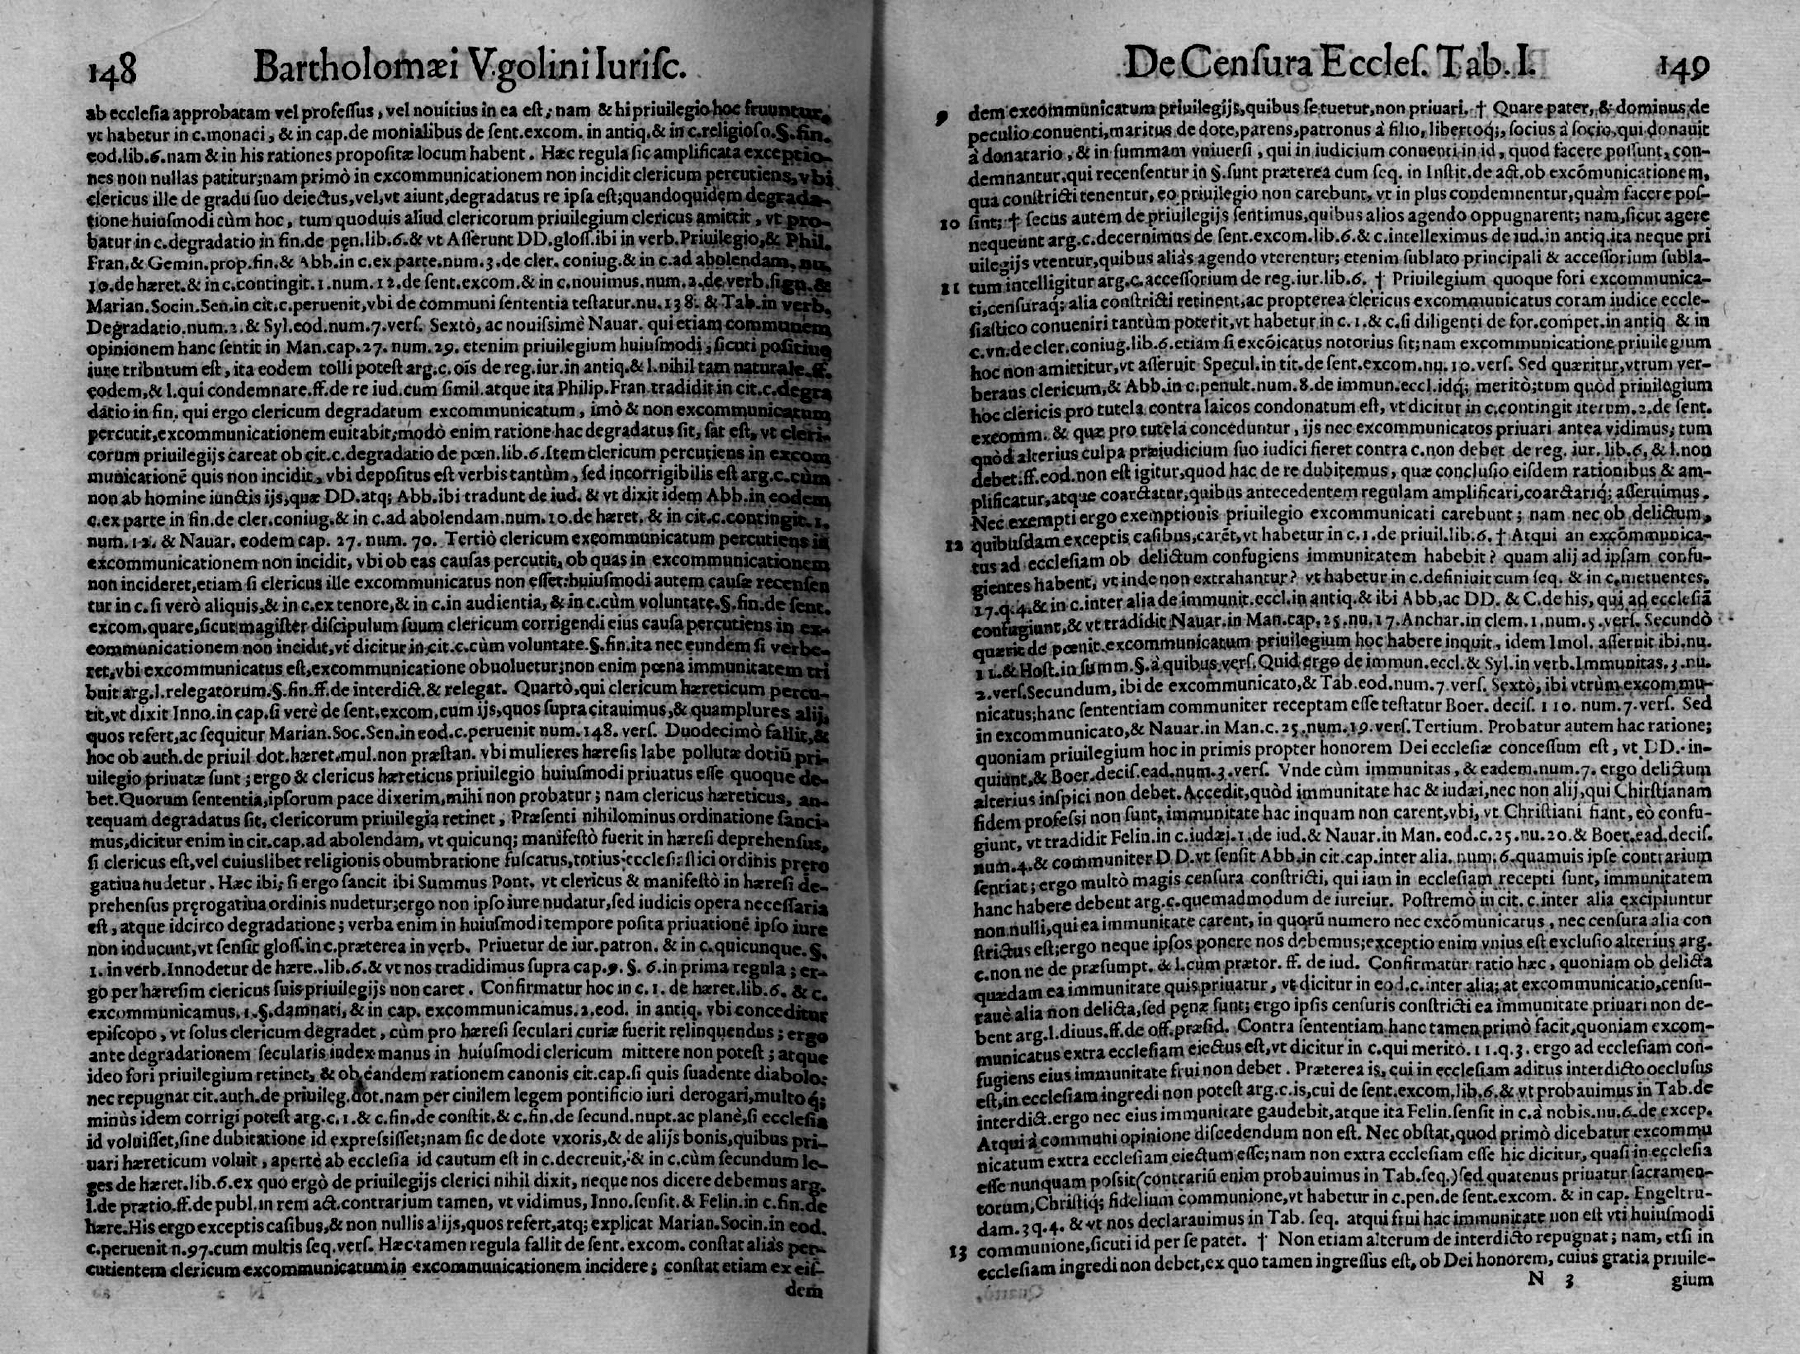 148 Bartholomæi Vgolini Iurisc.
ab ecclesia approbatam vel professus, vel nouitius in ea est; nam & hi priuilegio hoc fruuntur,
vt habetur in c.monaci, & in cap.de monialibus de sent.excom. in antiq.& in c.religioso.§.fin.
eod.lib.6.nam & in his rationes propositæ locum habent. Hæc regula sic amplificata exceptio-
nes non nullas patitur;nam primò in excommunicationem non incidit clericum percutiens,vbi
clericus ille de gradu suo deiectus,vel,vt aiunt,degradatus re ipsa est;quandoquidem degrada-
tione huiusmodi cùm hoc, tum quoduis aliud clericorum priuilegium clericus amittit, vt pro-
batur in c.degradatio in fin.de pęn.lib.6.& vt Asserunt DD.gloss.ibi in verb.Priuilegio,& Phil.
Fran.& Gemin.prop.fin.& Abb.in c.ex parte.num.3.de cler. coniug.& in c.ad abolendam.nu.
10.de hæret.& in c.contingit.1.num.12.de sent.excom.& in c.nouimus.num.2.de verb.sign.&
Marian.Socin.Sen.in cit.c.peruenit,vbi de communi sententia testatur.nu.138.& Tab.in verb.
Degradatio.num.2.& Syl.eod.num.7.vers. Sextò, ac nouissimè Nauar. qui etiam communem
opinionem hanc sentit in Man.cap.27.num.29. etenim priuilegium huiusmodi, sicuti positiuo
iure tributum est, ita eodem tolli potest arg.c.oīs de reg.iur.in antiq.& l.nihil tam naturale.ff.
eodem,& l.qui condemnare.ff.de re iud.cum simil.atque ita Philip.Fran.tradidit in cit.c.degra
datio in fin. qui ergo clericum degradatum excommunicatum, imò & non excommunicatum
percutit,excommunicationem euitabit;modò enim ratione hac degradatus sit, sat est, vt cleri-
corum priuilegijs careat ob cit.c.degradatio de pœn.lib.6.Item clericum percutiens in excom
municationē quis non incidit, vbi depositus est verbis tantùm, sed incorrigibilis est arg.c.cùm
non ab homine iunctis ijs,quæ DD.atq; Abb.ibi tradunt de iud. & vt dixit idem Abb.in eodem
c.ex parte in fin.de cler.coniug.& in c.ad abolendam.num.10.de hæret. & in cit.c.contingit.1.
num.12. & Nauar. eodem cap. 27. num. 70. Tertiò clericum excommunicatum percutiens in
excommunicationem non incidit, vbi ob eas causas percutit, ob quas in excommunicationem
non incideret,etiam si clericus ille excommunicatus non esset:huiusmodi autem causæ recensen
tur in c.si verò aliquis,& in c.ex tenore,& in c.in audientia,& in c.cùm voluntate.§.fin.de sent.
excom.quare,sicut magister discipulum suum clericum corrigendi eius causa percutiens in ex-
communicationem non incidit,vt dicitur in cit.c.cùm voluntate.§.fin.ita nec eundem si verbe-
ret,vbi excommunicatus est,excommunicatione obuoluetur;non enim pœna immunitatem tri
buit arg.l.relegatorum.§.fin.ff.de interdict.& relegat. Quartò,qui clericum hæreticum percu-
tit,vt dixit Inno.in cap.si verè de sent.excom.cum ijs,quos supra citauimus,& quamplures alij,
quos refert,ac sequitur Marian.Soc.Sen.in eod.c.peruenit num.148. vers. Duodecimò fallit,&
hoc ob auth.de priuil dot.hæret.mul.non præstan. vbi mulieres hæresis labe pollutæ dotiū pri-
uilegio priuatæ sunt; ergo & clericus hæreticus priuilegio huiusmodi priuatus esse quoque de-
bet.Quorum sententia,ipsorum pace dixerim,mihi non probatur; nam clericus hæreticus, an-
tequam degradatus sit, clericorum priuilegia retinet, Præsenti nihilominus ordinatione sanci-
mus,dicitur enim in cit.cap.ad abolendam, vt quicunq; manifestò fuerit in hæresi deprehensus,
si clericus est,vel cuiuslibet religionis obumbratione fuscatus,totius ecclesiastici ordinis pręro
gatiua nudetur. Hæc ibi; si ergo sancit ibi Summus Pont. vt clericus & manifestò in hæresi de-
prehensus pręrogatiua ordinis nudetur;ergo non ipso iure nudatur,sed iudicis opera necessaria
est, atque idcirco degradatione; verba enim in huiusmodi tempore posita priuationē ipso iure
non inducunt,vt sensit gloss.in c.præterea in verb. Priuetur de iur.patron. & in c.quicunque.§.
1.in verb.Innodetur de hære..lib.6.& vt nos tradidimus supra cap.9. §. 6.in prima regula; er-
go per hæresim clericus suis priuilegijs non caret. Confirmatur hoc in c. 1. de hæret.lib.6. & c.
excommunicamus.1.§.damnati,& in cap. excommunicamus.2.eod. in antiq. vbi conceditur
episcopo, vt solus clericum degradet, cùm pro hæresi seculari curiæ fuerit relinquendus; ergo
ante degradationem secularis iudex manus in huiusmodi clericum mittere non potest; atque
ideo fori priuilegium retinet, & ob eandem rationem canonis cit.cap.si quis suadente diabolo:
nec repugnat cit.auth.de priuileg.dot.nam per ciuilem legem pontificio iuri derogari,multo q́;
minùs idem corrigi potest arg.c.1.& c.fin.de constit.& c.fin.de secund.nupt.ac planè,si ecclesia
id voluisset,sine dubitatione id expressisset;nam sic de dote vxoris,& de alijs bonis,quibus pri-
uari hæreticum voluit, apertè ab ecclesia id cautum est in c.decreuit,& in c.cùm secundum le-
ges de hæret.lib.6.ex quo ergò de priuilegijs clerici nihil dixit, neque nos dicere debemus arg.
l.de prætio.ff.de publ.in rem act.contrarium tamen, vt vidimus, Inno.sensit.& Felin.in c.fin.de
hære.His ergo exceptis casibus,& non nullis alijs,quos refert,atq; explicat Marian.Socin.in eod.
c.peruenit n.97.cum multis seq.vers. Hæc tamen regula fallit de sent. excom. constat aliàs per-
cutientem clericum excommunicatum in excommunicationem incidere; constat etiam ex eis-
dem
De Censura Eccles. Tab. I. 149
9 dem excommunicatum priuilegijs,quibus se tuetur,non priuari. † Quare pater, & dominus de
peculio conuenti,maritus de dote,parens,patronus à filio, libertoq;, socius à socio, qui donauit
à donatario, & in summam vniuersi, qui in iudicium conuenti in id, quod facere possunt, con-
demnantur,qui recensentur in §.sunt præterea cum seq. in Instit.de act.ob excōmunicationem,
qua constricti tenentur, eo priuilegio non carebunt, vt in plus condemnentur, quàm facere pos-
10 sint; † secus autem de priuilegijs sentimus,quibus alios agendo oppugnarent; nam,sicut agere
nequeunt arg.c.decernimus de sent.excom.lib.6.& c.intelleximus de iud.in antiq.ita neque pri
uilegijs vtentur,quibus aliàs agendo vterentur; etenim sublato principali & accessorium subla-
11 tum intelligitur arg.c.accessorium de reg.iur.lib.6. † Priuilegium quoque fori excommunica-
ti,censuraq; alia constricti retinent,ac propterea clericus excommunicatus coram iudice eccle-
siastico conueniri tantùm poterit,vt habetur in c.1.& c.si diligenti de for.compet.in antiq & in
c.vn.de cler.coniug.lib.6.etiam si excōicatus notorius sit; nam excommunicatione priuilegium
hoc non amittitur,vt asseruit Specul.in tit.de sent.excom.nu.10.vers. Sed quæritur,vtrum ver-
berans clericum,& Abb.in c.penult.num.8.de immun.eccl.idq; meritò;tum quòd priuilegium
hoc clericis pro tutela contra laicos condonatum est, vt dicitur in c.contingit iterum.2.de sent.
excomm. & quæ pro tutela conceduntur, ijs nec excommunicatos priuari antea vidimus; tum
quòd alterius culpa præiudicium suo iudici fieret contra c.non debet de reg. iur. lib.6, & l.non
debet.ff.eod.non est igitur,quod hac de re dubitemus, quæ conclusio eisdem rationibus & am-
plificatur,atque coarctatur,quibus antecedentem regulam amplificari,coarctariq́; asseruimus.
Nec exempti ergo exemptionis priuilegio excommunicati carebunt; nam nec ob delictum,
12 quibusdam exceptis casibus,carēt,vt habetur in c.1.de priuil.lib.6.† Atqui an excōmunica-
tus ad ecclesiam ob delictum confugiens immunitatem habebit? quam alij ad ipsam confu-
gientes habent, vt inde non extrahantur? vt habetur in c.definiuit cum seq. & in c.metuentes.
17.q.4.& in c.inter alia de immunit.eccl.in antiq.& ibi Abb,ac DD. & C.de his, qui ad ecclesiā
confugiunt,& vt tradidit Nauar.in Man.cap.25.nu.17.Anchar.in clem.1.num.5.vers. Secundò
quærit de pœnit.excommunicatum priuilegium hoc habere inquit, idem Imol. asseruit ibi.nu.
11.& Host.in summ.§.à quibus vers. Quid ergo de immun.eccl.& Syl.in verb.Immunitas.3.nu.
2.vers.Secundum, ibi de excommunicato,& Tab.eod.num.7.vers. Sextò, ibi vtrùm excommu-
nicatus;hanc sententiam communiter receptam esse testatur Boer. decis. 110. num.7.vers. Sed
in excommunicato,& Nauar.in Man.c.25.num.19.vers.Tertium. Probatur autem hac ratione;
quoniam priuilegium hoc in primis propter honorem Dei ecclesiæ concessum est, vt DD. in-
quiunt,& Boer.decis.ead.num.3.vers. Vnde cùm immunitas, & eadem.num.7. ergo delictum
alterius inspici non debet. Accedit,quòd immunitate hac & iudæi,nec non alij,qui Chirstianam
fidem professi non sunt, immunitate hac inquam non carent,vbi, vt Christiani fiant, eò confu-
giunt, vt tradidit Felin.in c.iudæi.1.de iud.& Nauar.in Man. eod.c.25.nu.20.& Boer.ead.decis.
num.4.& communiter DD.vt sensit Abb.in cit.cap.inter alia. num.6.quamuis ipse contrarium
sentiat; ergo multò magis censura constricti, qui iam in ecclesiam recepti sunt, immunitatem
hanc habere debent arg.c.quemadmodum de iureiur. Postremò in cit. c.inter alia excipiuntur
non nulli, qui ea immunitate carent, in quorū numero nec excōmunicatus, nec censura alia con
strictus est;ergo neque ipsos ponere nos debemus;exceptio enim vnius est exclusio alterius arg.
c.non ne de præsumpt. & l.cùm prætor. ff. de iud. Confirmatur ratio hæc, quoniam ob delicta
quædam ea immunitate quis priuatur, vt dicitur in eod.c.inter alia; at excommunicatio,censu-
raue alia non delicta,sed pęnæ sunt; ergo ipsis censuris constricti ea immunitate priuari non de-
bent arg.l.diuus.ff.de off.præsid. Contra sententiam hanc tamen primò facit,quoniam excom-
municatus extra ecclesiam eiectus est,vt dicitur in c.qui meritò.11.q.3. ergo ad ecclesiam con-
fugiens eius immunitate frui non debet. Præterea is, cui in ecclesiam aditus interdicto occlusus
est,in ecclesiam ingredi non potest arg.c.is,cui de sent.excom.lib.6.& vt probauimus in Tab.de
interdict.ergo nec eius immunitate gaudebit,atque ita Felin.sensit in c.à nobis.nu.6.de excep.
Atqui à communi opinione discedendum non est. Nec obstat,quod primò dicebatur excommu
nicatum extra ecclesiam eiectum esse;nam non extra ecclesiam esse hic dicitur, quasi in ecclesia
esse nunquam possit(contrariū enim probauimus in Tab.seq.)sed quatenus priuatur sacramen-
torum,Christiq; fidelium communione,vt habetur in c.pen.de sent.excom. & in cap. Engeltru-
dam.3q.4. & vt nos declarauimus in Tab. seq. atqui frui hac immunitate non est vti huiusmodi
13 communione,sicuti id per se patet. † Non etiam alterum de interdicto repugnat; nam, etsi in
ecclesiam ingredi non debet,ex quo tamen ingressus est, ob Dei honorem, cuius gratia priuile-
N 3 gium